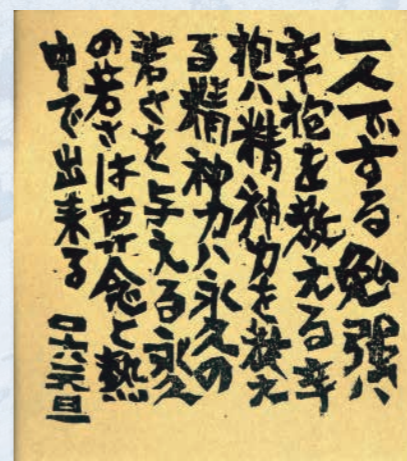 一人でする勉強ハ
辛抱を教える辛
抱ハ精神力を教え
る精神力ハ永久の
若さを与える永久
の若さは専念と熱
中で出来る 元旦